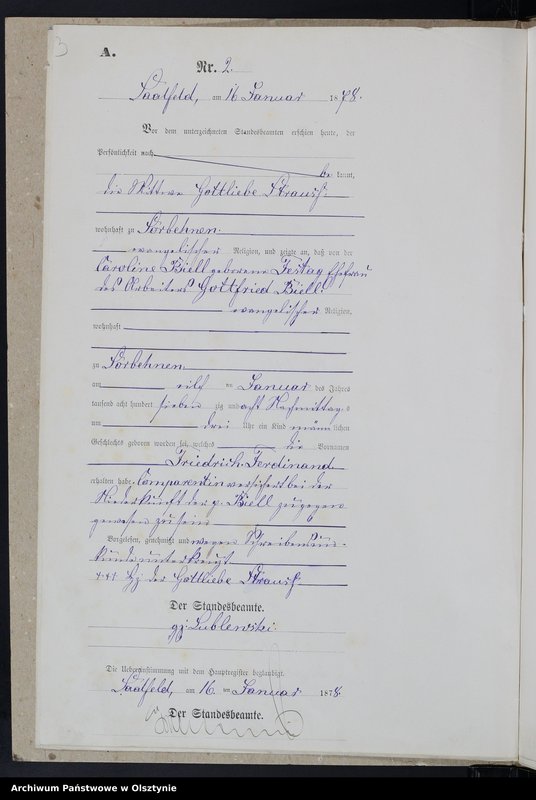 3
A.
Nr. 2.
Saalfeld, am 16 Januar 1878.
Vor dem unterzeichneten Standesbeamten erschien heute, der
Persönlichkeit nach
be kannt,
die Wittwe Gottliebe Strauß
wohnhaft zu Sorbehnen
evangelischer Religion, und zeigte an, daß von der
Caroline Biell geborene Festag Ehefrau
des Arbeiters Gottfried Biell
evangelischer Religion,
wohnhaft
zu Sorbehnen
am elf ten Januar des Jahres
tausend acht hundert sieben zig und acht Nachmittags
um drei Uhr ein Kind männ lichen
Geschlechts geboren worden sei, welches die Vornamen
Friedrich Ferdinand
erhalten habe. Comparentin versichert bei der
Niederkunft der p. Biell zugegen
gewesen zu sein
Vorgelesen, genehmigt und wegen Schreibensun-
kunde unterkreuzt
+++ Hz der Gottliebe Strauß
Der Standesbeamte.
gz. Lublewski.
Die Uebereinstimmung mit dem Hauptregister beglaubigt.
Saalfeld, am 16 ten Januar 1878.
Der Standesbeamte.
Archiwum Państwowe w Olsztynie